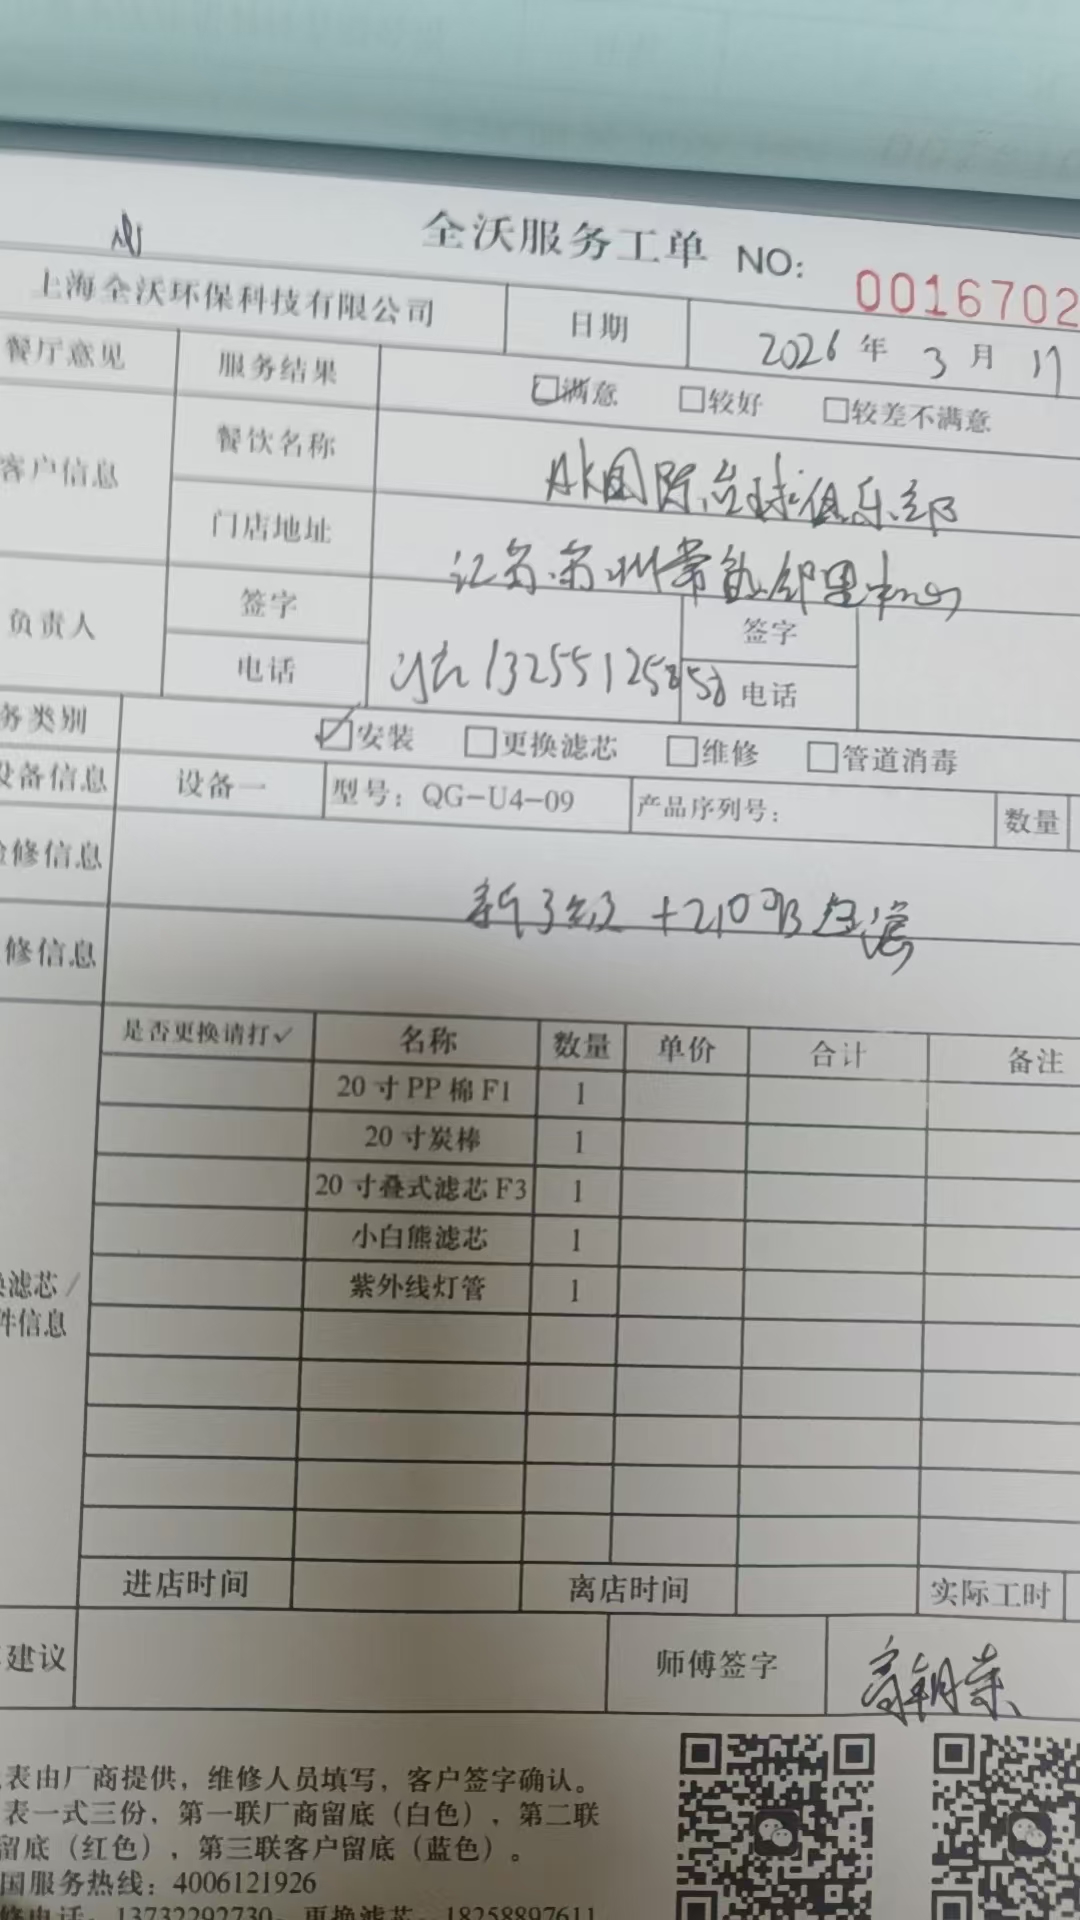 全沃服务工单 NO: 0016702
上海全沃环保科技有限公司 日期 2026 年 3 月 17
餐厅意见 服务结果 ☑满意 □较好 □较差不满意
客户信息 餐饮名称 AK国际台球俱乐部
门店地址 江苏苏州常熟邻里中心
负责人 签字 签字
电话 13255125858 电话
务类别 ☑安装 □更换滤芯 □维修 □管道消毒
设备信息 设备一 型号：QG-U4-09 产品序列号： 数量
检修信息 新3级+210
修信息
是否更换请打✓ 名称 数量 单价 合计 备注
20寸PP棉F1 1
20寸炭棒 1
20寸叠式滤芯F3 1
小白熊滤芯 1
紫外线灯管 1
换滤芯/
件信息
进店时间 离店时间 实际工时
建议 师傅签字 高朝荣
表由厂商提供，维修人员填写，客户签字确认。
表一式三份，第一联厂商留底（白色），第二联
留底（红色），第三联客户留底（蓝色）。
国服务热线：4006121926
修电话：13732292730 更换滤芯：18258897611